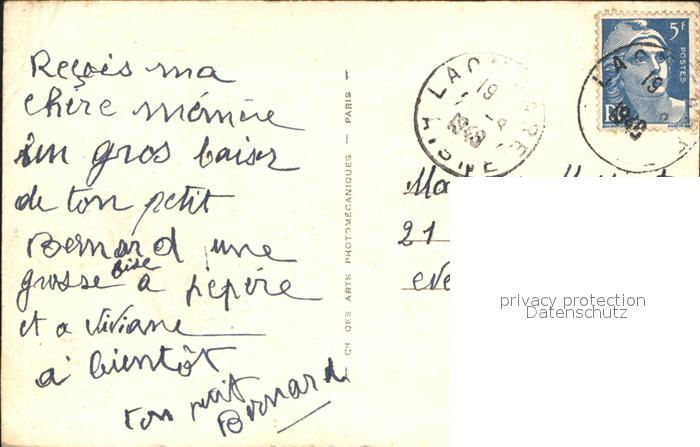 Reçois ma
chère mémère
un gros baiser
de ton petit
Bernard une
grosse bise a pépère
et a Viviane
a bientôt
ton petit
Bernard
Cie DES ARTS PHOTOMÉCANIQUES — PARIS
LAON GARE
19
1949
AISNE
5F
POSTES
LAON
19
1949
21
privacy protection
Datenschutz